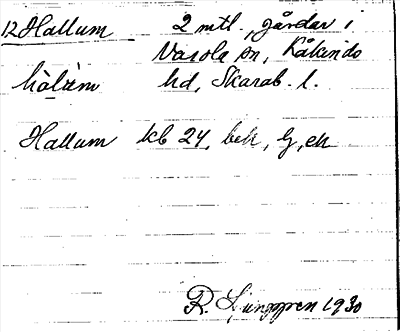 12 Hallum 2 mtl., gårdar i
Varola sn, Kåkinds
hd, Skarab. l.
Hallum kb 24, bek, G, ek
R. Ljunggren 1930